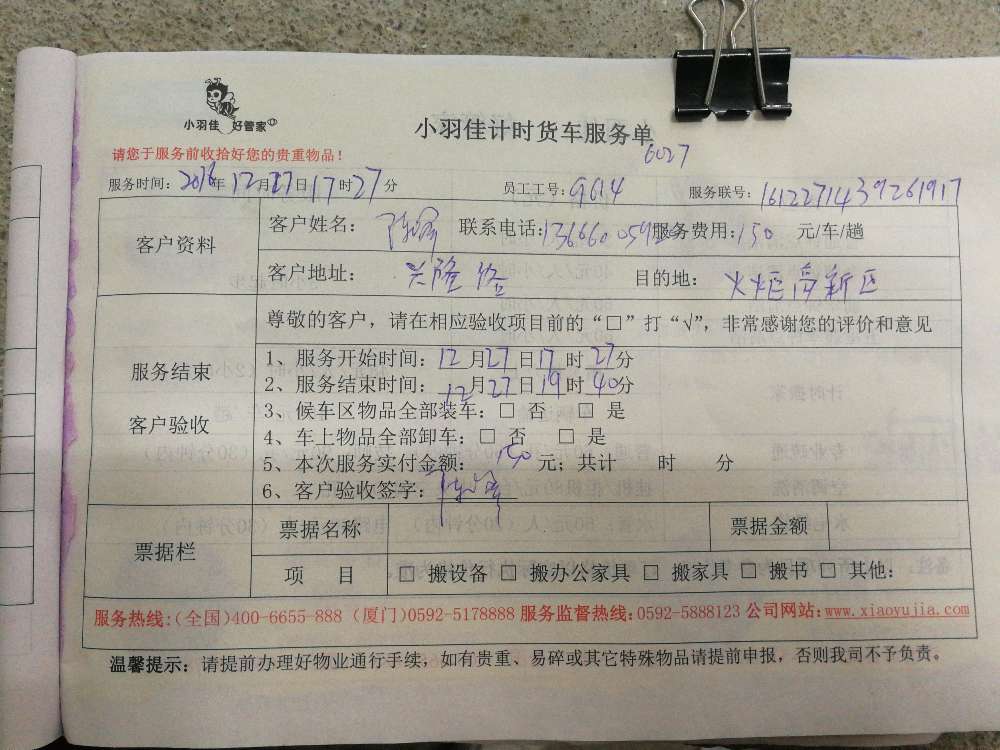 小羽佳 好管家
小羽佳计时货车服务单
6027
请您于服务前收拾好您的贵重物品！
服务时间：2016年12月27日17时27分 员工工号：9614 服务联号：1612271439261917
客户资料 客户姓名： 联系电话： 服务费用：150 元/车/趟
客户地址：兴隆路 目的地：火炬高新区
尊敬的客户，请在相应验收项目前的“□”打“√”，非常感谢您的评价和意见
服务结束
客户验收
1、服务开始时间：12月27日17时27分
2、服务结束时间：12月27日19时40分
3、候车区物品全部装车：□ 否 □ 是
4、车上物品全部卸车：□ 否 □ 是
5、本次服务实付金额：150元；共计 时 分
6、客户验收签字：
票据栏 票据名称 票据金额
项 目 □ 搬设备 □ 搬办公家具 □ 搬家具 □ 搬书 □ 其他：
服务热线：(全国)400-6655-888 (厦门)0592-5178888 服务监督热线：0592-5888123 公司网站：www.xiaoyujia.com
温馨提示：请提前办理好物业通行手续，如有贵重、易碎或其它特殊物品请提前申报，否则我司不予负责。